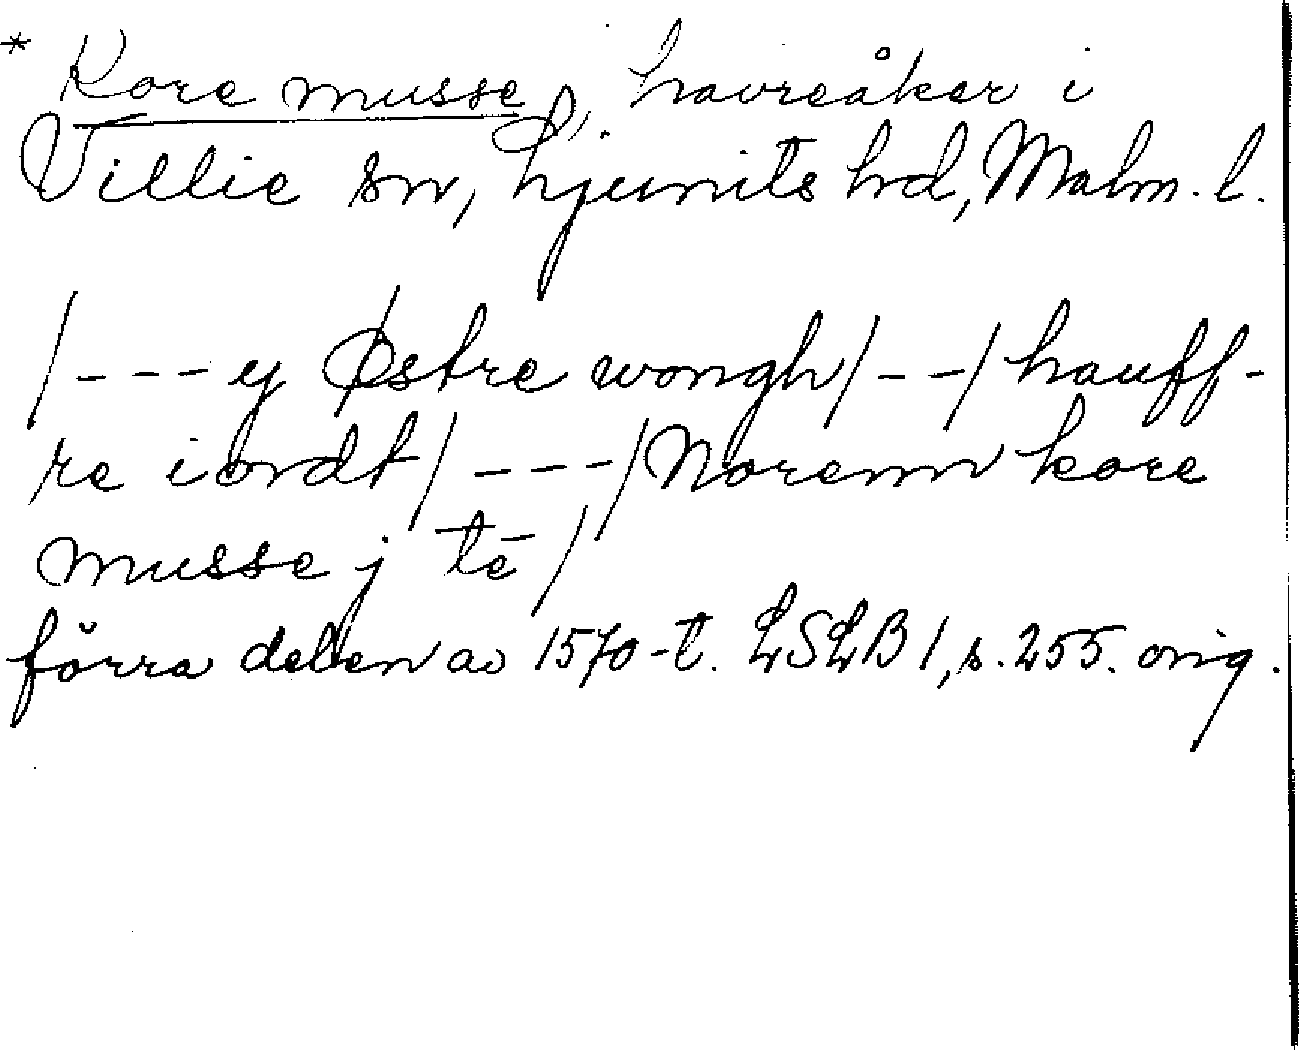 * Kore musse, havreåker i
Villie sn, Ljunits hd, Malm. l.
/---y Østre wongh/--/hauff-
re iordt/---/Norenn kore
musse j tē/
förra delen av 1570-t. LSLB 1, s. 255. orig.